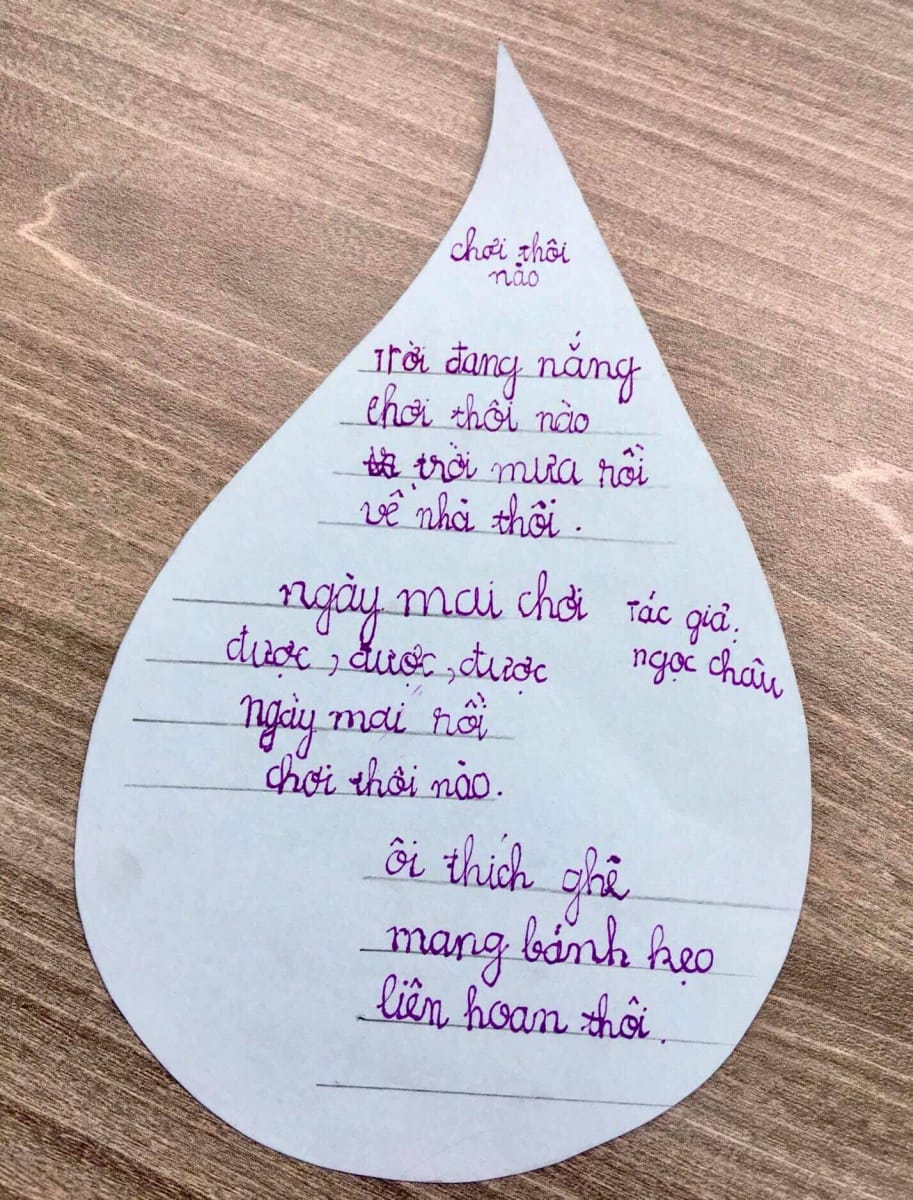 chơi thôi
nào
Trời đang nắng
chơi thôi nào
trời mưa rồi
về nhà thôi.
ngày mai chơi
được, được, được
ngày mai rồi
chơi thôi nào.
Tác giả.
ngọc châu
ôi thích ghê
mang bánh kẹo
liên hoan thôi.